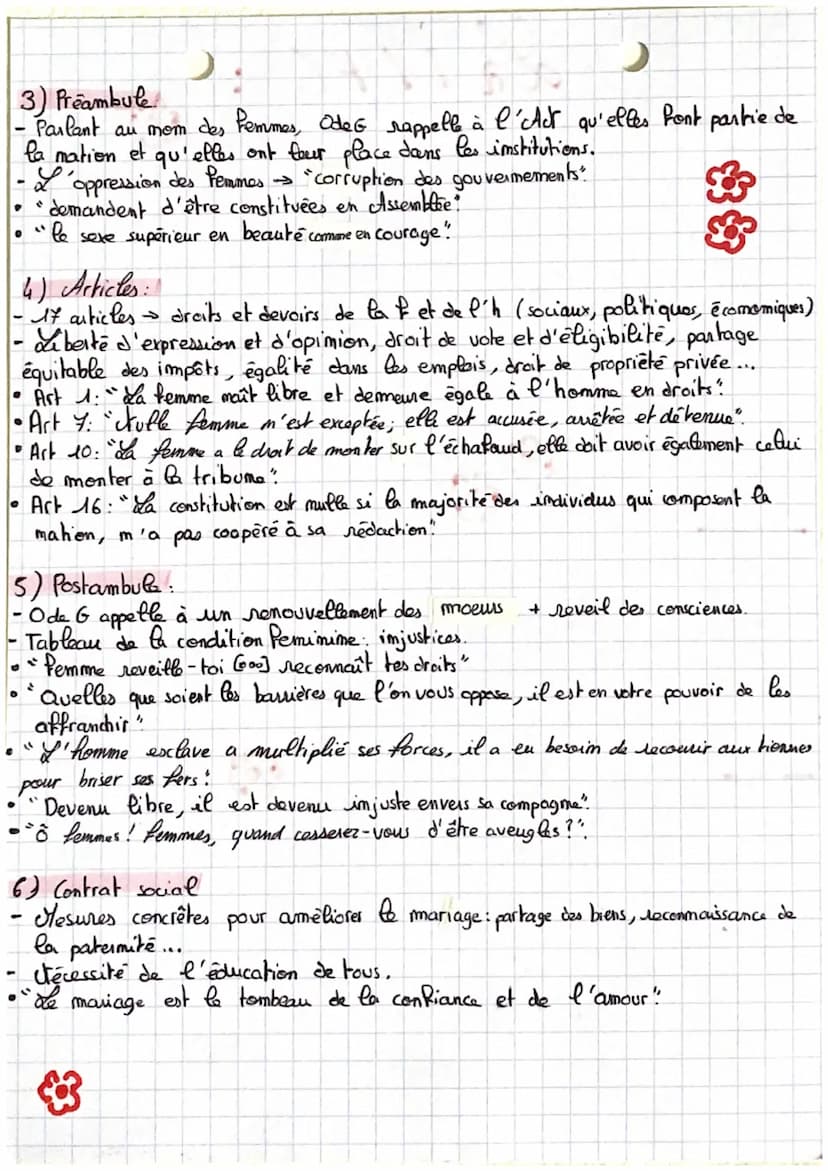 3) Préambule:
- Parlant au nom des femmes, OdeG rappelle à l'AN qu'elles font partie de
la nation et qu'elles ont leur place dans les institutions.
- L'oppression des femmes → "corruption des gouvernements".
• "demandent d'être constituées en Assemblée".
• "le sexe supérieur en beauté comme en courage".
4) Articles:
- 17 articles → droits et devoirs de la f et de l'h (sociaux, politiques, économiques)
- Liberté d'expression et d'opinion, droit de vote et d'éligibilité, partage
équitable des impôts, égalité dans les emplois, droit de propriété privée...
• Art 1: "La femme naît libre et demeure égale à l'homme en droits".
• Art 7: "Nulle femme n'est exceptée; elle est accusée, arrêtée et détenue".
• Art 10: "La femme a le droit de monter sur l'échafaud, elle doit avoir également celui
de monter à la tribune".
• Art 16: "La constitution est nulle si la majorité des individus qui composent la
nation, n'a pas coopéré à sa rédaction".
5) Postambule:
- Ode G appelle à un renouvellement des moeurs + reveil des consciences.
- Tableau de la condition féminine: injustices.
• "Femme reveille-toi [...] reconnaît tes droits"
• "Quelles que soient les barrières que l'on vous oppose, il est en votre pouvoir de les
affranchir".
• "L'homme esclave a multiplié ses forces, il a eu besoin de recourir aux tiennes
pour briser ses fers".
• "Devenu libre, il est devenu injuste envers sa compagne".
• "ô femmes! femmes, quand cesserez-vous d'être aveugles?".
6) Contrat social
- Mesures concrêtes pour améliorer le mariage: partage des biens, reconnaissance de
la paternité...
- Nécessité de l'éducation de tous.
• "Le mariage est le tombeau de la confiance et de l'amour".